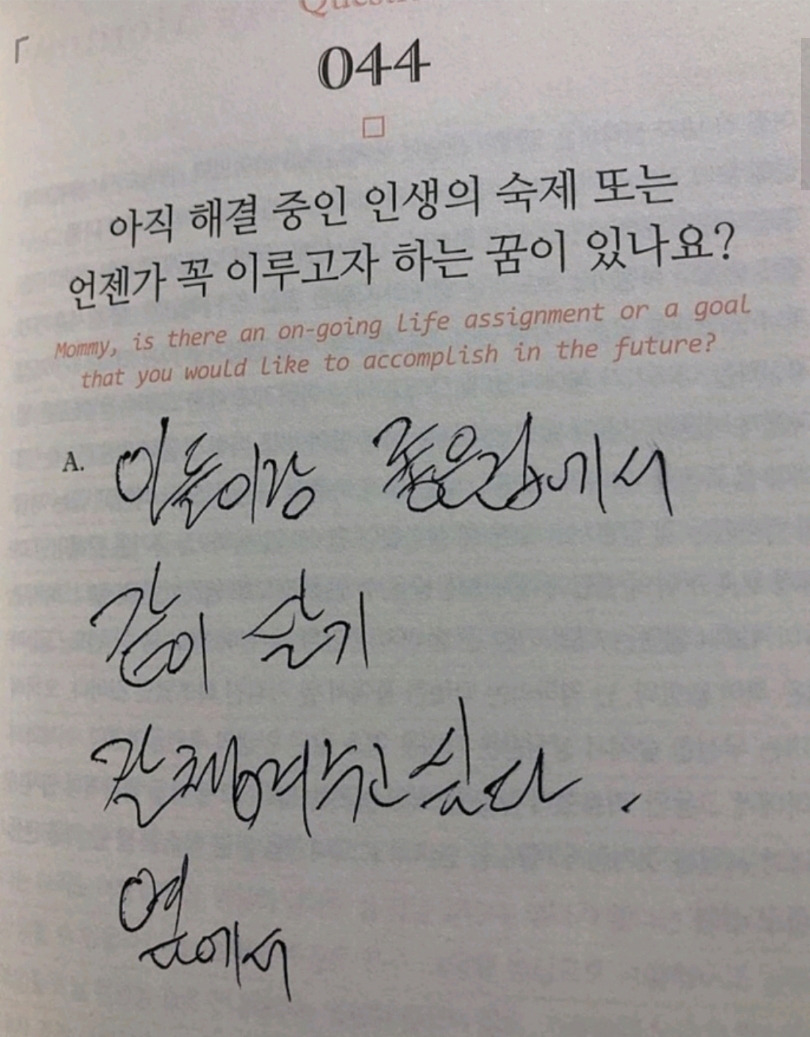 044
아직 해결 중인 인생의 숙제 또는
언젠가 꼭 이루고자 하는 꿈이 있나요?
Mommy, is there an on-going life assignment or a goal
that you would like to accomplish in the future?
A. 이돌이랑 좋은집에서
같이 살기
잘 챙겨주고 싶다.
옆에서